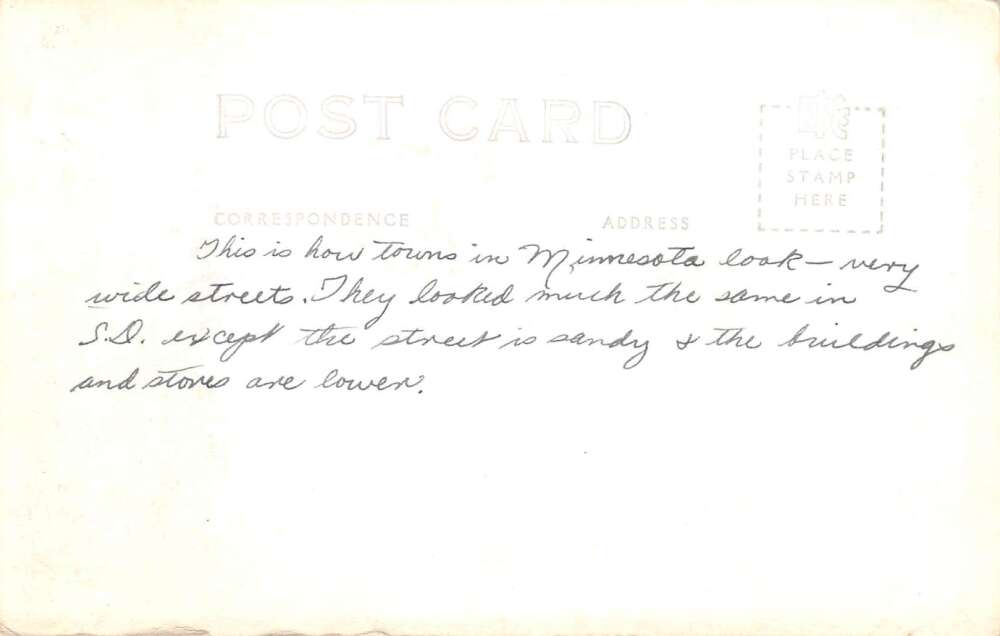 POST CARD
PLACE
STAMP
HERE
CORRESPONDENCE
ADDRESS
This is how towns in Minnesota look — very
wide streets. They looked much the same in
S.D. except the street is sandy & the buildings
and stores are lower.